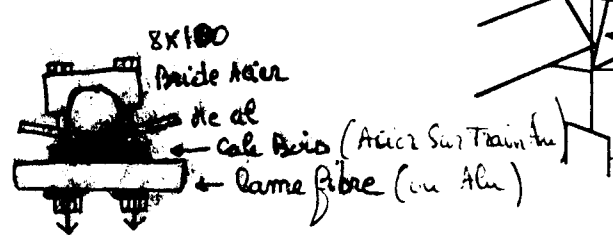 8x100
Bride Acier
Cale Bois (Acier Sur Train Av)
Lame fibre (ou Alu)